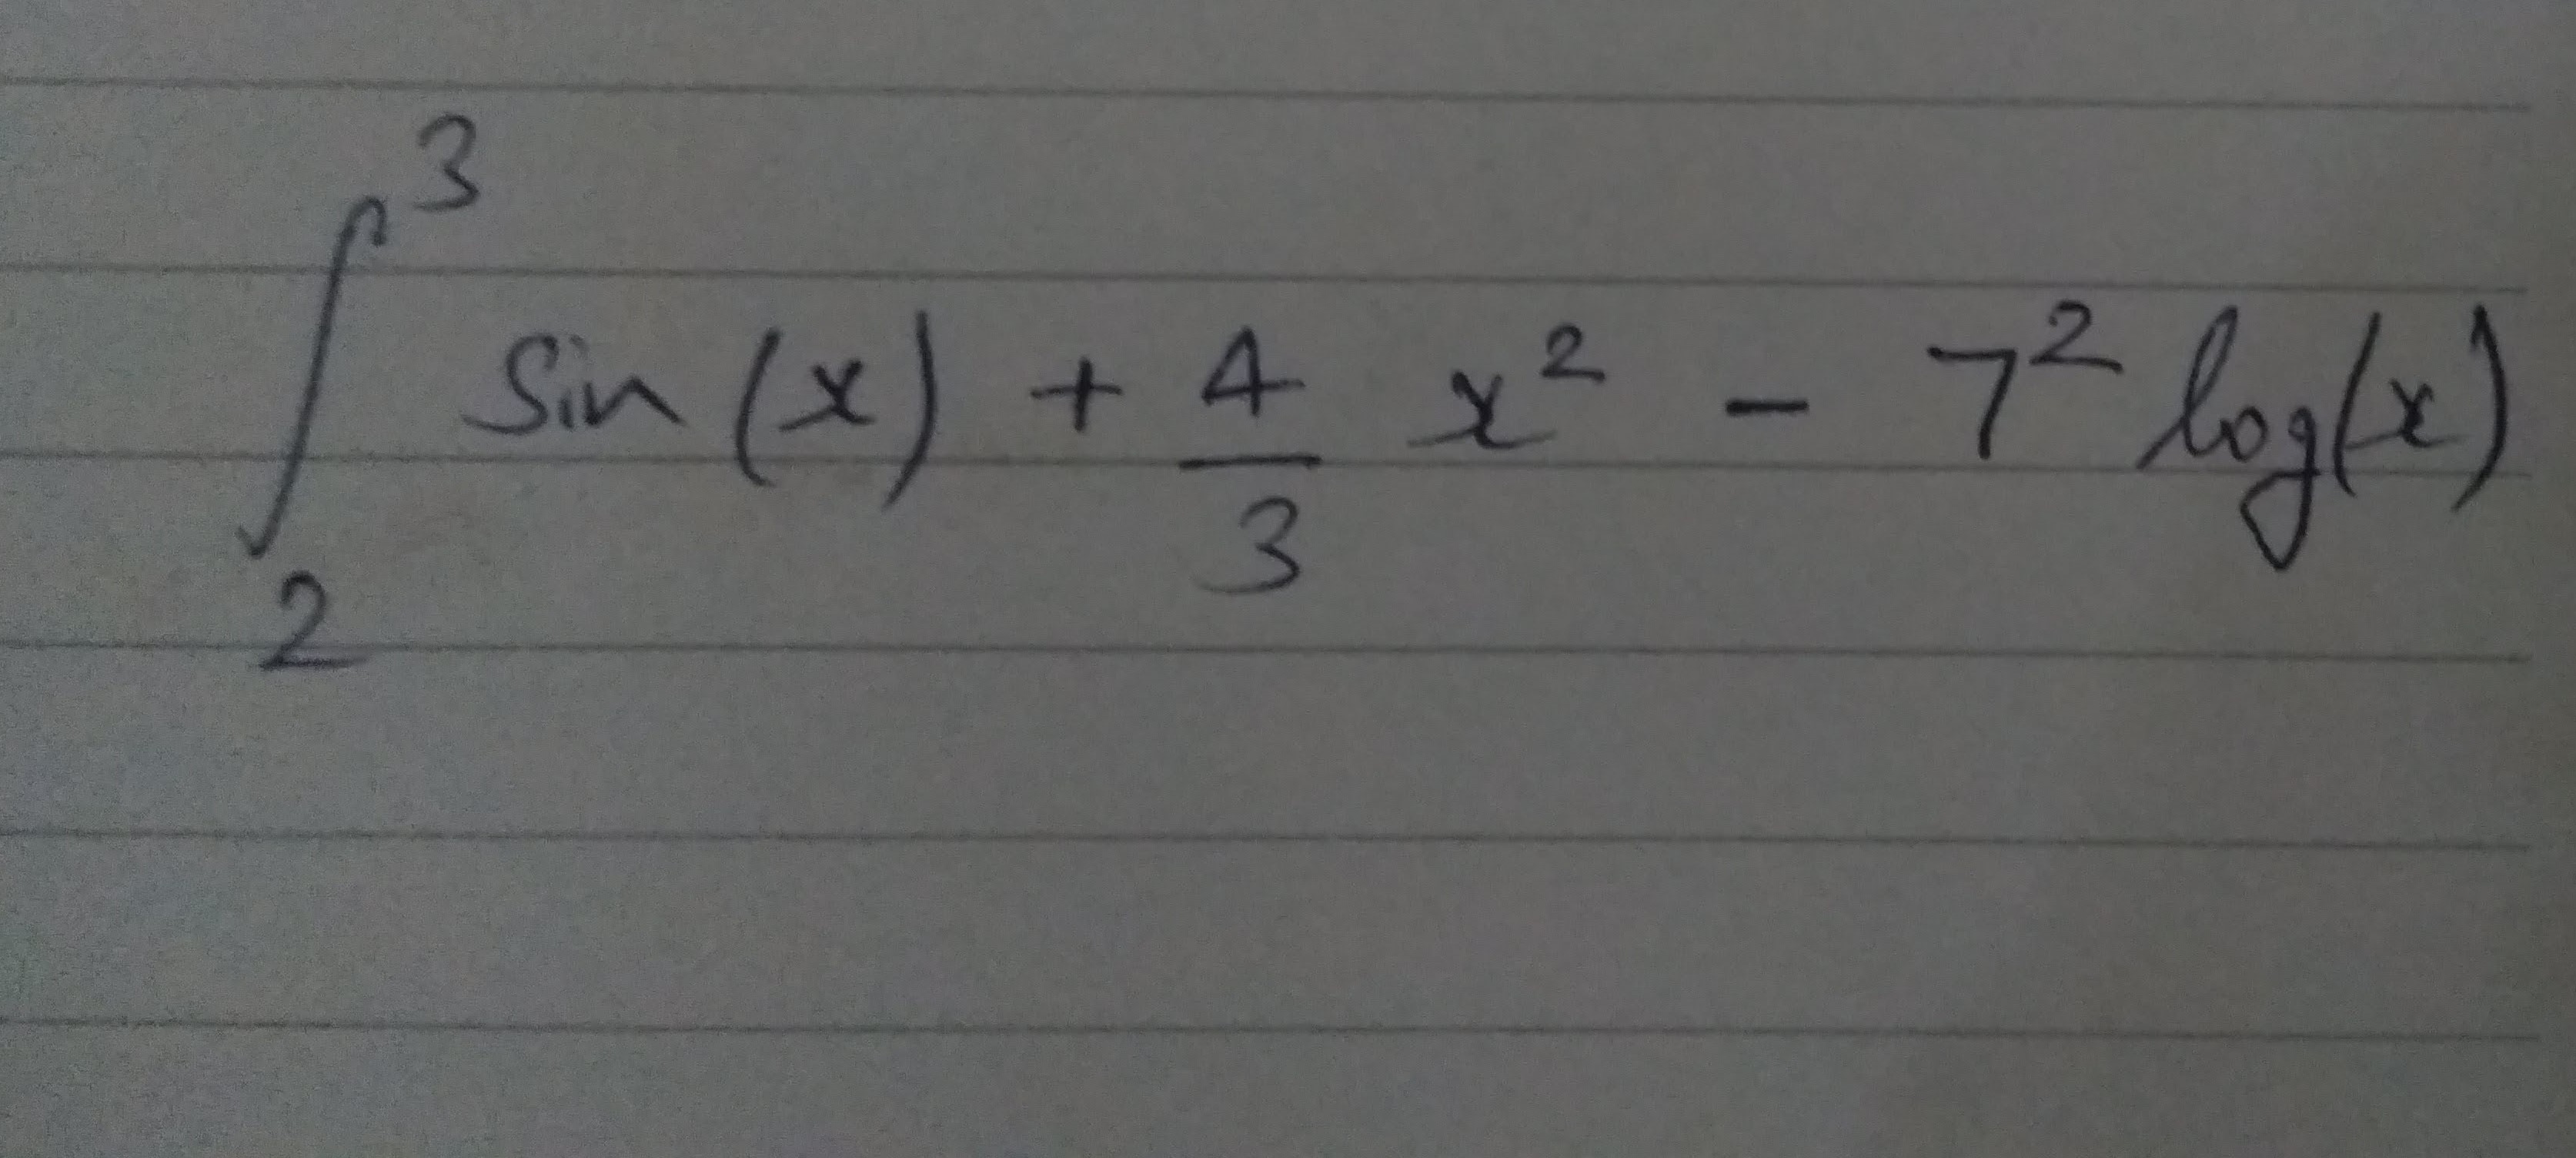 ∫₂³ Sin(x) + 4/3 x² - 7² log(x)